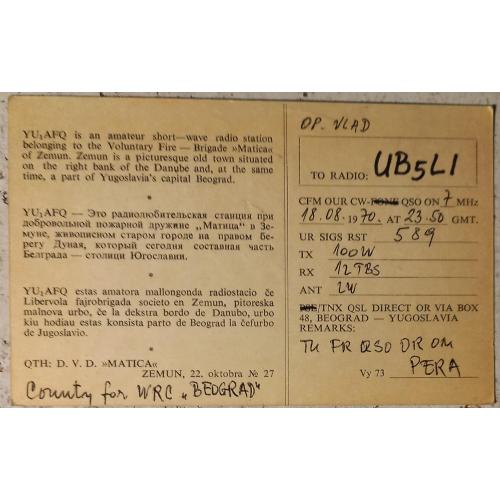 YU₁AFQ is an amateur short—wave radio station
belonging to the Voluntary Fire — Brigade »Matica«
of Zemun. Zemun is a picturesque old town situated
on the right bank of the Danube and, at the same
time, a part of Yugoslavia's capital Beograd.
•
YU₁AFQ — Это радиолюбительская станция при
добровольной пожарной дружине „Матица" в Зе-
муне, живописном старом городе на правом бе-
регу Дуная, который сегодня составная часть
Белграда — столици Югославии.
•
YU₁AFQ estas amatora mallongonda radiostacio ĉe
Libervola fajrobrigada societo en Zemun, pitoreska
malnova urbo, ĉe la dekstra bordo de Danubo, urbo
kiu hodiau estas konsista parto de Beograd la ĉefurbo
de Jugoslavio.
•
QTH: D. V. D. »MATICA«
ZEMUN, 22. oktobra № 27
County for WRC „BEOGRAD"
OP. VLAD
TO RADIO: UB5LI
CFM OUR CW-FONE QSO ON 7 MHz
18.08.1970. AT 23.50 GMT.
UR SIGS RST 589
TX 100W
RX 12TBS
ANT 2W
PSE/TNX QSL DIRECT OR VIA BOX
48, BEOGRAD — YUGOSLAVIA
REMARKS:
TU FR QSO DR OM
Vy 73 PERA